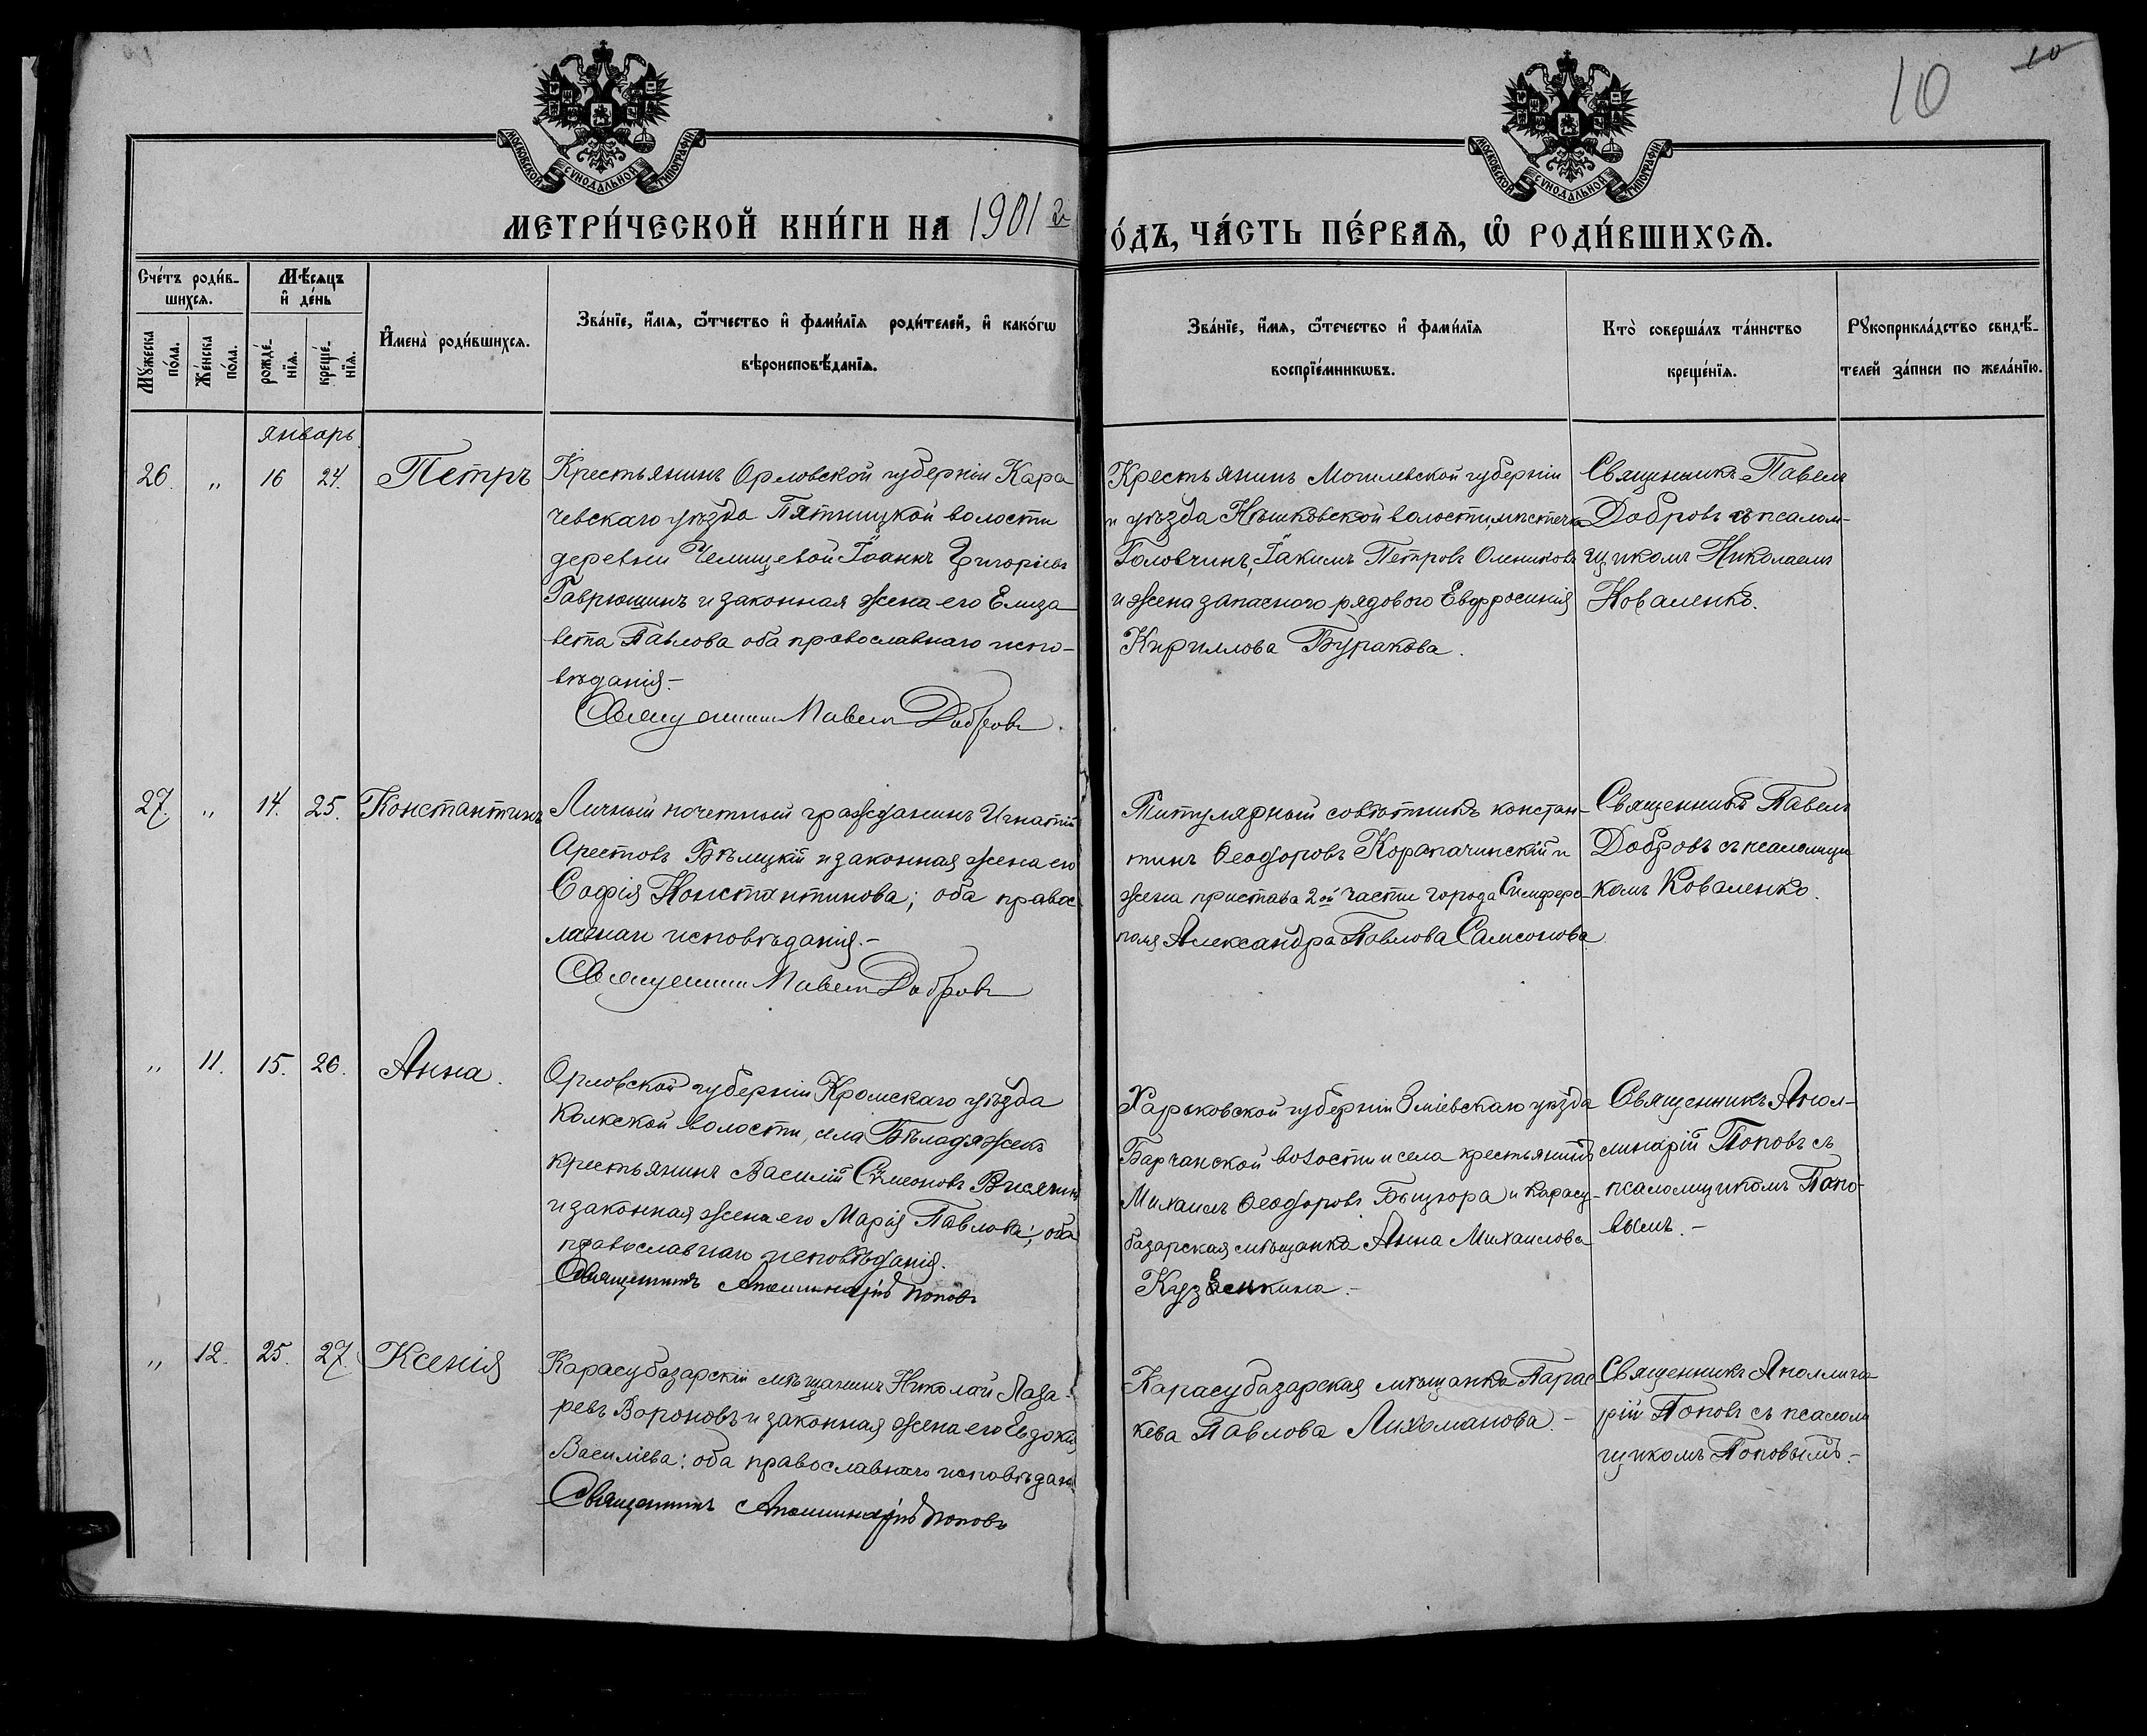 10
10
МОСКОВСКОЙ СУНОДАЛЬНОЙ ТИПОГРАФІИ
МОСКОВСКОЙ СУНОДАЛЬНОЙ ТИПОГРАФІИ
МЕТРИ́ЧЕСКОЙ КНИ́ГИ НА 1901 г
О́ДЪ, ЧА́СТЬ ПЕ́РВАѦ, Ѡ҆ РОДИ́ВШИХСѦ.
Сче́тъ роди́в-
шихсѧ.
Мѣ́сѧцъ
и҆ де́нь
Мꙋ́жеска по́ла.
Же́нска по́ла.
рожде́-
нїѧ.
креще́-
нїѧ.
И҆мена̀ роди́вшихсѧ.
Зва́нїе, и҆́мѧ, ѻ҆́тчество и҆ фами́лїѧ роди́телей, и҆ како́гѡ
вѣроисповѣ́данїѧ.
Зва́нїе, и҆́мѧ, ѻ҆́течество и҆ фами́лїѧ
воспрїе́мникѡвъ.
Кто̀ соверша́лъ та́инство
креще́нїѧ.
Рꙋкоприкла́дство свидѣ́-
телей за́писи по жела́нїю.
январь
26. „ 16 24. Петръ
Крестьянинъ Орловской губерніи Кара
чевскаго уѣзда Пятницкой волости
деревни Челищевой Іоаннъ Григоріевъ
Гаврюшинъ и законная жена его Елиза
вета Павлова оба православнаго испо-
вѣданія.-
Священникъ Павелъ Добровъ.
Крестьянинъ Могилевской губерніи
и уѣзда Няшковской волости, мѣстечка
Головчинъ, Іакимъ Петровъ Олениковъ
и жена запаснаго рядового Евфросинія
Кириллова Буракова.
Священникъ Павелъ
Добровъ съ псалом-
щикомъ Николаемъ
Коваленко.
27. „ 14. 25. Константинъ
Личный почетный гражданинъ Игнатій
Арестовъ Бѣлицкій и законная жена его
Софія Константинова; оба правос
лавнаго исповѣданія.-
Священникъ Павелъ Добровъ
Титулярный совѣтникъ констан-
тинъ Ѳеодоровъ Карапачинскій и
жена пристава 2ой части города Симферо
поля Александра Павлова Самсонова
Священникъ Павелъ
Добровъ съ псаломщи
комъ Коваленко.
„ 11. 15. 26. Анна.
Орловской губерніи Кромскаго уѣзда
Колкской волости, села Бѣлодяжекъ
крестьянинъ Василій Сѵмеоновъ Висягинъ
и законная жена его Марія Павлова; оба
православнаго исповѣданія.
Священникъ Аполлинарій Поповъ
Харьковской губерніи Зміевскаго уѣзда
Барчанской волости и села крестьянинъ
Михаилъ Ѳеодоровъ Быщхора и Карасу-
базарская мѣщанка Анна Михаилова
Кузвенкина.-
Священникъ Апол-
линарій Поповъ съ
псаломщикомъ Попо-
вымъ.-
„ 12. 25. 27. Ксенія
Карасубазарскій мѣщанинъ Николай Лаза-
ревъ Вороновъ и законная жена его Евдокія
Василіева: оба православнаго исповѣдан.
Священникъ Аполлинарій Поповъ
Карасубазарская мѣщанка Парас
кева Павлова Лихоманова.-
Священникъ Аполлина
рій Поповъ съ псалом
щикомъ Поповымъ.-